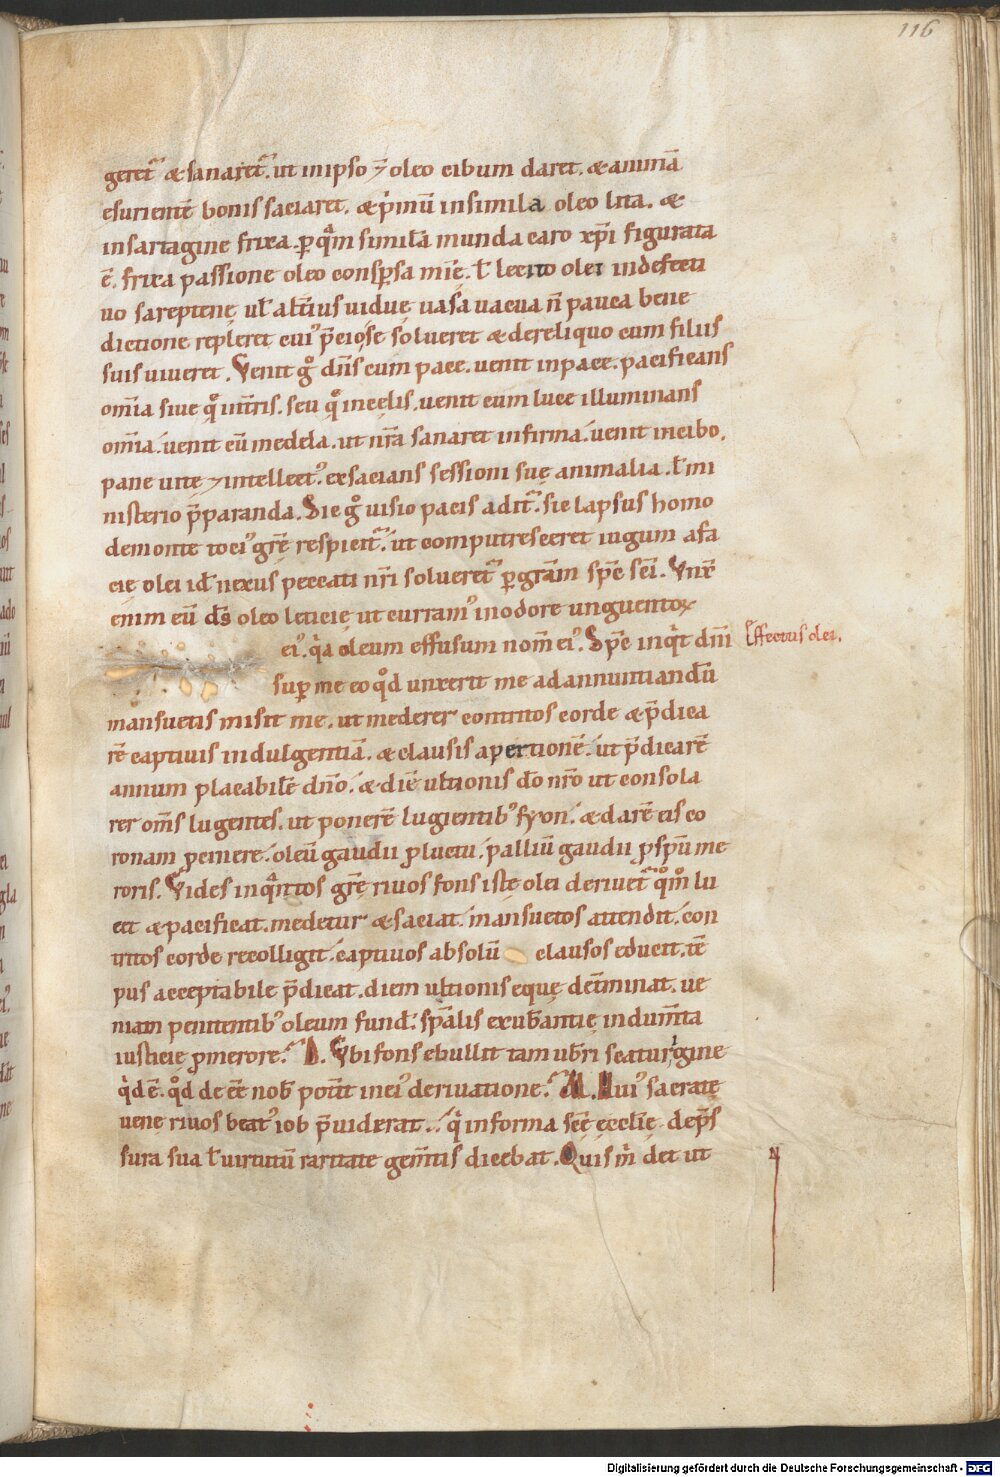 116
geret᷑ & sanaret᷑. ut in ipso ⁊ oleo cibum daret. & animā
esurientē bonis saciaret. & p̍mū in simila oleo lita. &
in sartagine frixa. ꝑ qͣm simil̄a munda caro xp̄i figurata
ē. frixa passione oleo consꝑsa mīe. ł lecito olei indefecti
uo sareptenę ul̄ alt̄ius viduę vasa vacua n̄ pauca bene
dictione repleret cui᾽ p̄ciose solueret & de reliquo cum filiis
suis viueret. Venit gͦ dn̄s cum pace. uenit in pace. pacificans
om̄ia siue qͦ in t̄ris. seu qͦ in cęlis. uenit cum luce illuminans
om̄ia. uenit cū medela. ut nr̄a sanaret infirma. uenit in cibo.
pane uite ⁊ intellect᾽. exsacians sessioni suę animalia. ł mi
nisterio p̄paranda. Sic gͦ uisio pacis adit᷑. sic lapsus homo
de monte toci᾽ grē respicit᷑. ut computresceret iugum a fa
cie olei id̄ nexus peccati nr̄i solueret᷑ ꝑ grām spc̄ sc̄i. Vnx̄
enim eū d̄s oleo leticię ut curram᾽ in odore unguentoꝝ
ei᾽. qͥa oleum effusum nom̄ ei᾽. Sp̄c inqͥt dn̄i
Effectus olei.
suꝑ me eo qͦd unxerit me ad annuntiandū
mansuetis misit me. ut mederer contritos corde & p̄dica
rē captiuis indulgentiā. & clausis apertionē. ut p̄dicarē
annum placabilē dn̄o. & diē ultionis do nr̄o ut consola
rer om̄s lugentes. ut ponerē lugientib᾽ syon. & darē eis co
ronam p cinere. oleū gaudii p luctu. palliū gaudii p spū me
roris. Vides in qͣntos grē riuos fons iste olei deriuet᷑ qͦmͦ lu
cet & pacificat. medetur & saciat. mansuetos attendit. con
tritos corde recolligit. captiuos absolū clausos educit. tē
pus acceptabile p̄dicat. diem ultionis eque det̄minat. ue
niam penitentib᾽ oleum fund᷑. sp̄alis exub̄antię indum̄ta
iusticię p merore. D. Vbi fons ebullit tam ub̄ri scaturigine
qͥd ē. qͦd de eē nob̄ pot̄it in ei᾽ deriuatione. M. Hui᾽ sacratę
uenę riuos beat᾽ iob p̄uiderat. qͥ in forma sc̄ę ęcclię dep̄s
sura sua ł uirtutū raritate gem̄tis dicebat. Quis m̄ det ut
Digitalisierung gefördert durch die Deutsche Forschungsgemeinschaft - DFG